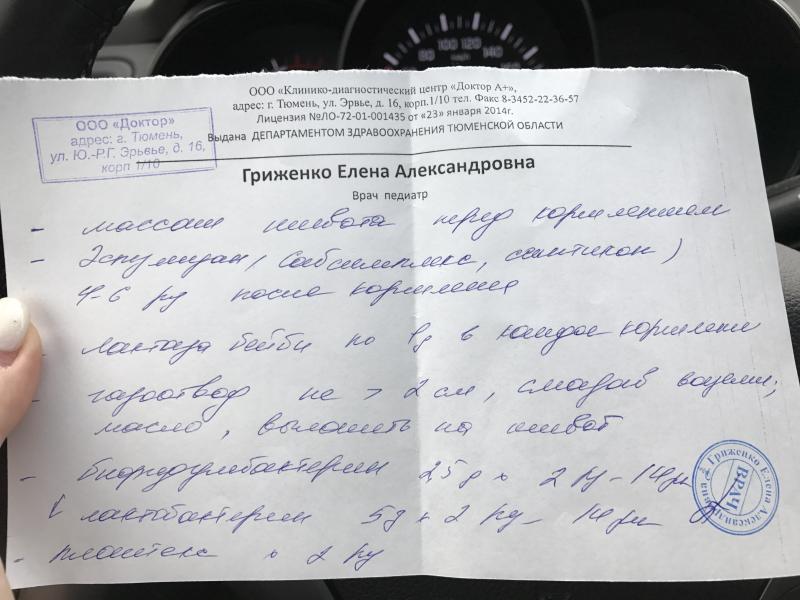 ООО «Клинико-диагностический центр «Доктор А+»,
адрес: г. Тюмень, ул. Эрвье, д. 16, корп.1/10 тел. Факс 8-3452-22-36-57
Лицензия №ЛО-72-01-001435 от «23» января 2014г.
Выдана ДЕПАРТАМЕНТОМ ЗДРАВООХРАНЕНИЯ ТЮМЕНСКОЙ ОБЛАСТИ
ООО «Доктор»
адрес: г. Тюмень,
ул. Ю.-Р.Г. Эрвье, д. 16,
корп 1/10
Гриженко Елена Александровна
Врач педиатр
- массаж живота перед кормлением
- Эспумизан (Сабсимплекс, симтикон)
4-6 р/д после кормления
- лактаза бейби по в каждое кормление
- газоотвод не > 2 см, смазав вазелин;
масло, выложить на живот
- 2 р/д - 14 дн
лактобактерин 5д x 2 р/д - 14 дн
- плантекс x 2 р/д
Гриженко Елена Александровна
ВРАЧ
80 100 120 140